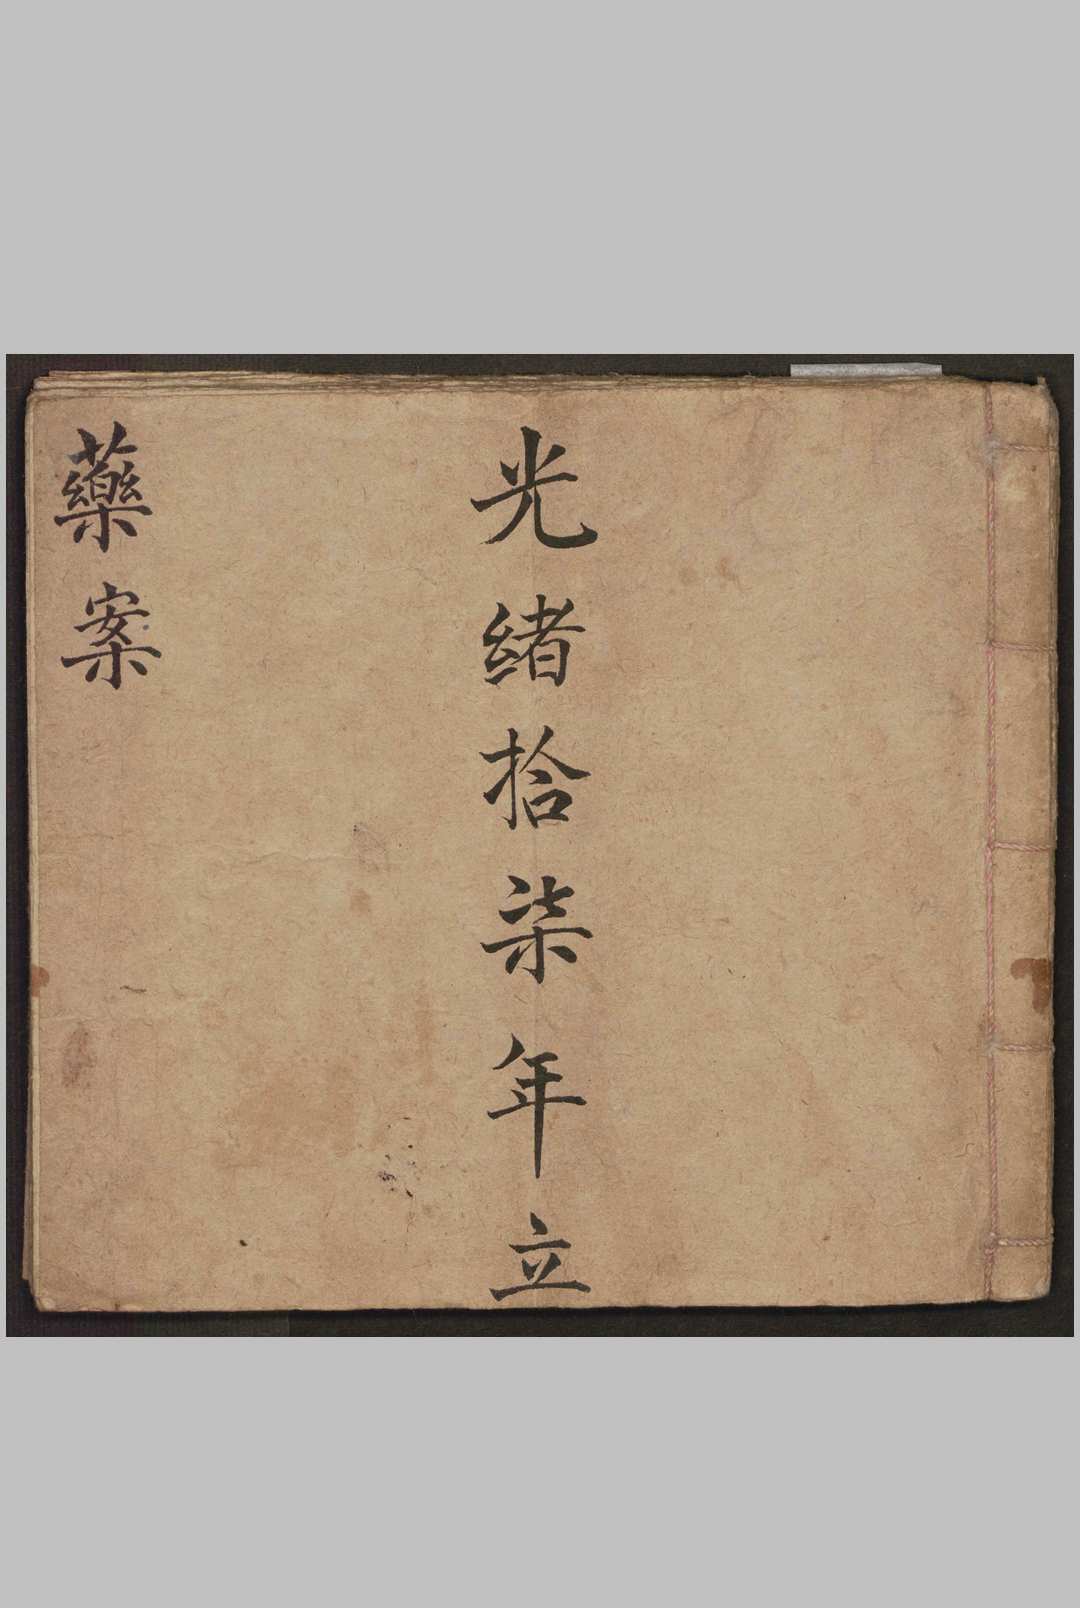 光緒拾柒年立
藥案